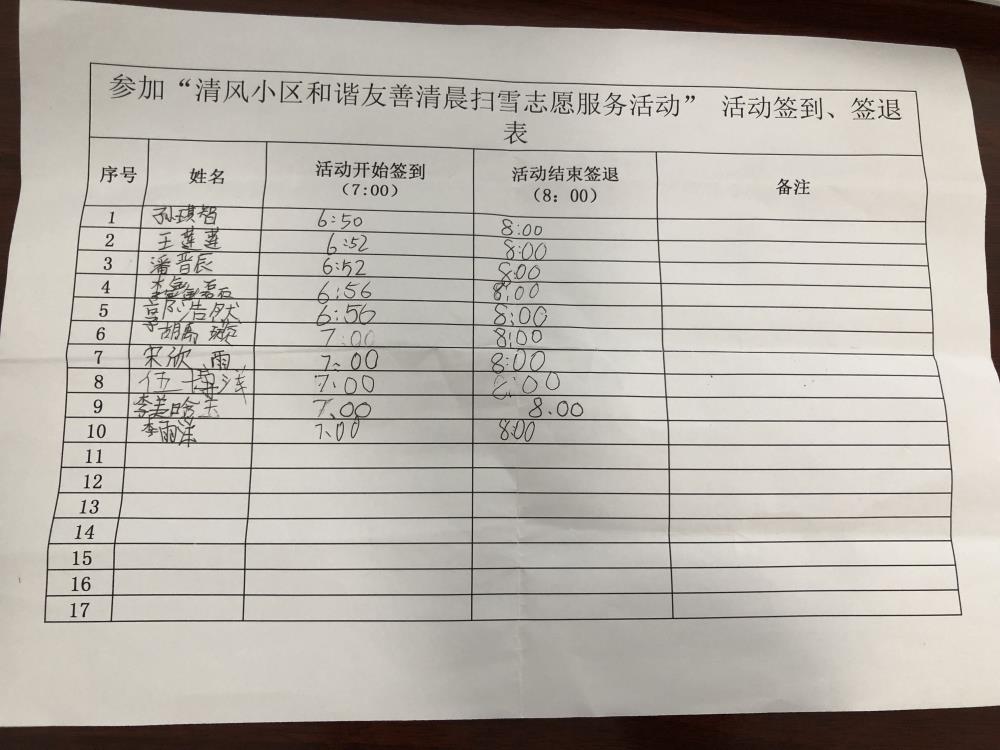 参加“清风小区和谐友善清晨扫雪志愿服务活动” 活动签到、签退
表
序号 姓名 活动开始签到 (7:00) 活动结束签退 (8:00) 备注
1 孙琪智 6:50 8:00
2 王莲莲 6:52 8:00
3 潘晋辰 6:52 8:00
4 6:56 8:00
5 浩然 6:56 8:00
6 胡禹 7:00 8:00
7 宋欣雨 7:00 8:00
8 伍博洋 7:00 8:00
9 李美晗 7.00 8.00
10 李雨 7:00 8:00
11
12
13
14
15
16
17